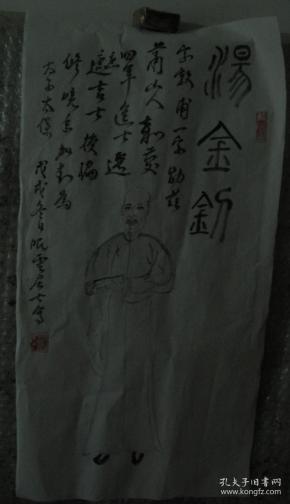 湯金釗
字敦甫一字勖茲
蕭山人嘉慶
四年進士選
庶吉士 授編
修 晚年加封為
太子太保
戊戌冬月
孔夫子旧书网